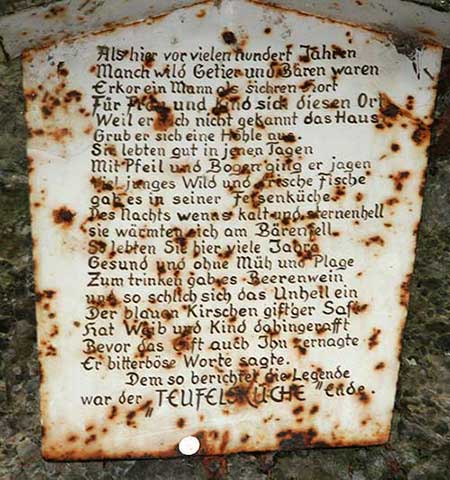 Als hier vor vielen hundert Jahren
Manch wild Getier und Bären waren
Erkor ein Mann als sichren Hort
Für Frau und Kind sich diesen Ort
Weil er noch nicht gekannt das Haus
Grub er sich eine Höhle aus.
Sie lebten gut in jenen Tagen
Mit Pfeil und Bogen ging er jagen
Viel junges Wild und frische Fische
gab es in seiner Felsenküche
Des Nachts wenns kalt und sternenhell
sie wärmten sich am Bärenfell.
So lebten Sie hier viele Jahre
Gesund und ohne Müh und Plage
Zum trinken gab es Beerenwein
und so schlich sich das Unheil ein
Der blauen Kirschen giftger Saft
Hat Weib und Kind dahingerafft
Bevor das Gift auch Ihn zernagte
Er bitterböse Worte sagte.
Dem so berichtet die Legende
war der „TEUFELSKÜCHE" Ende.